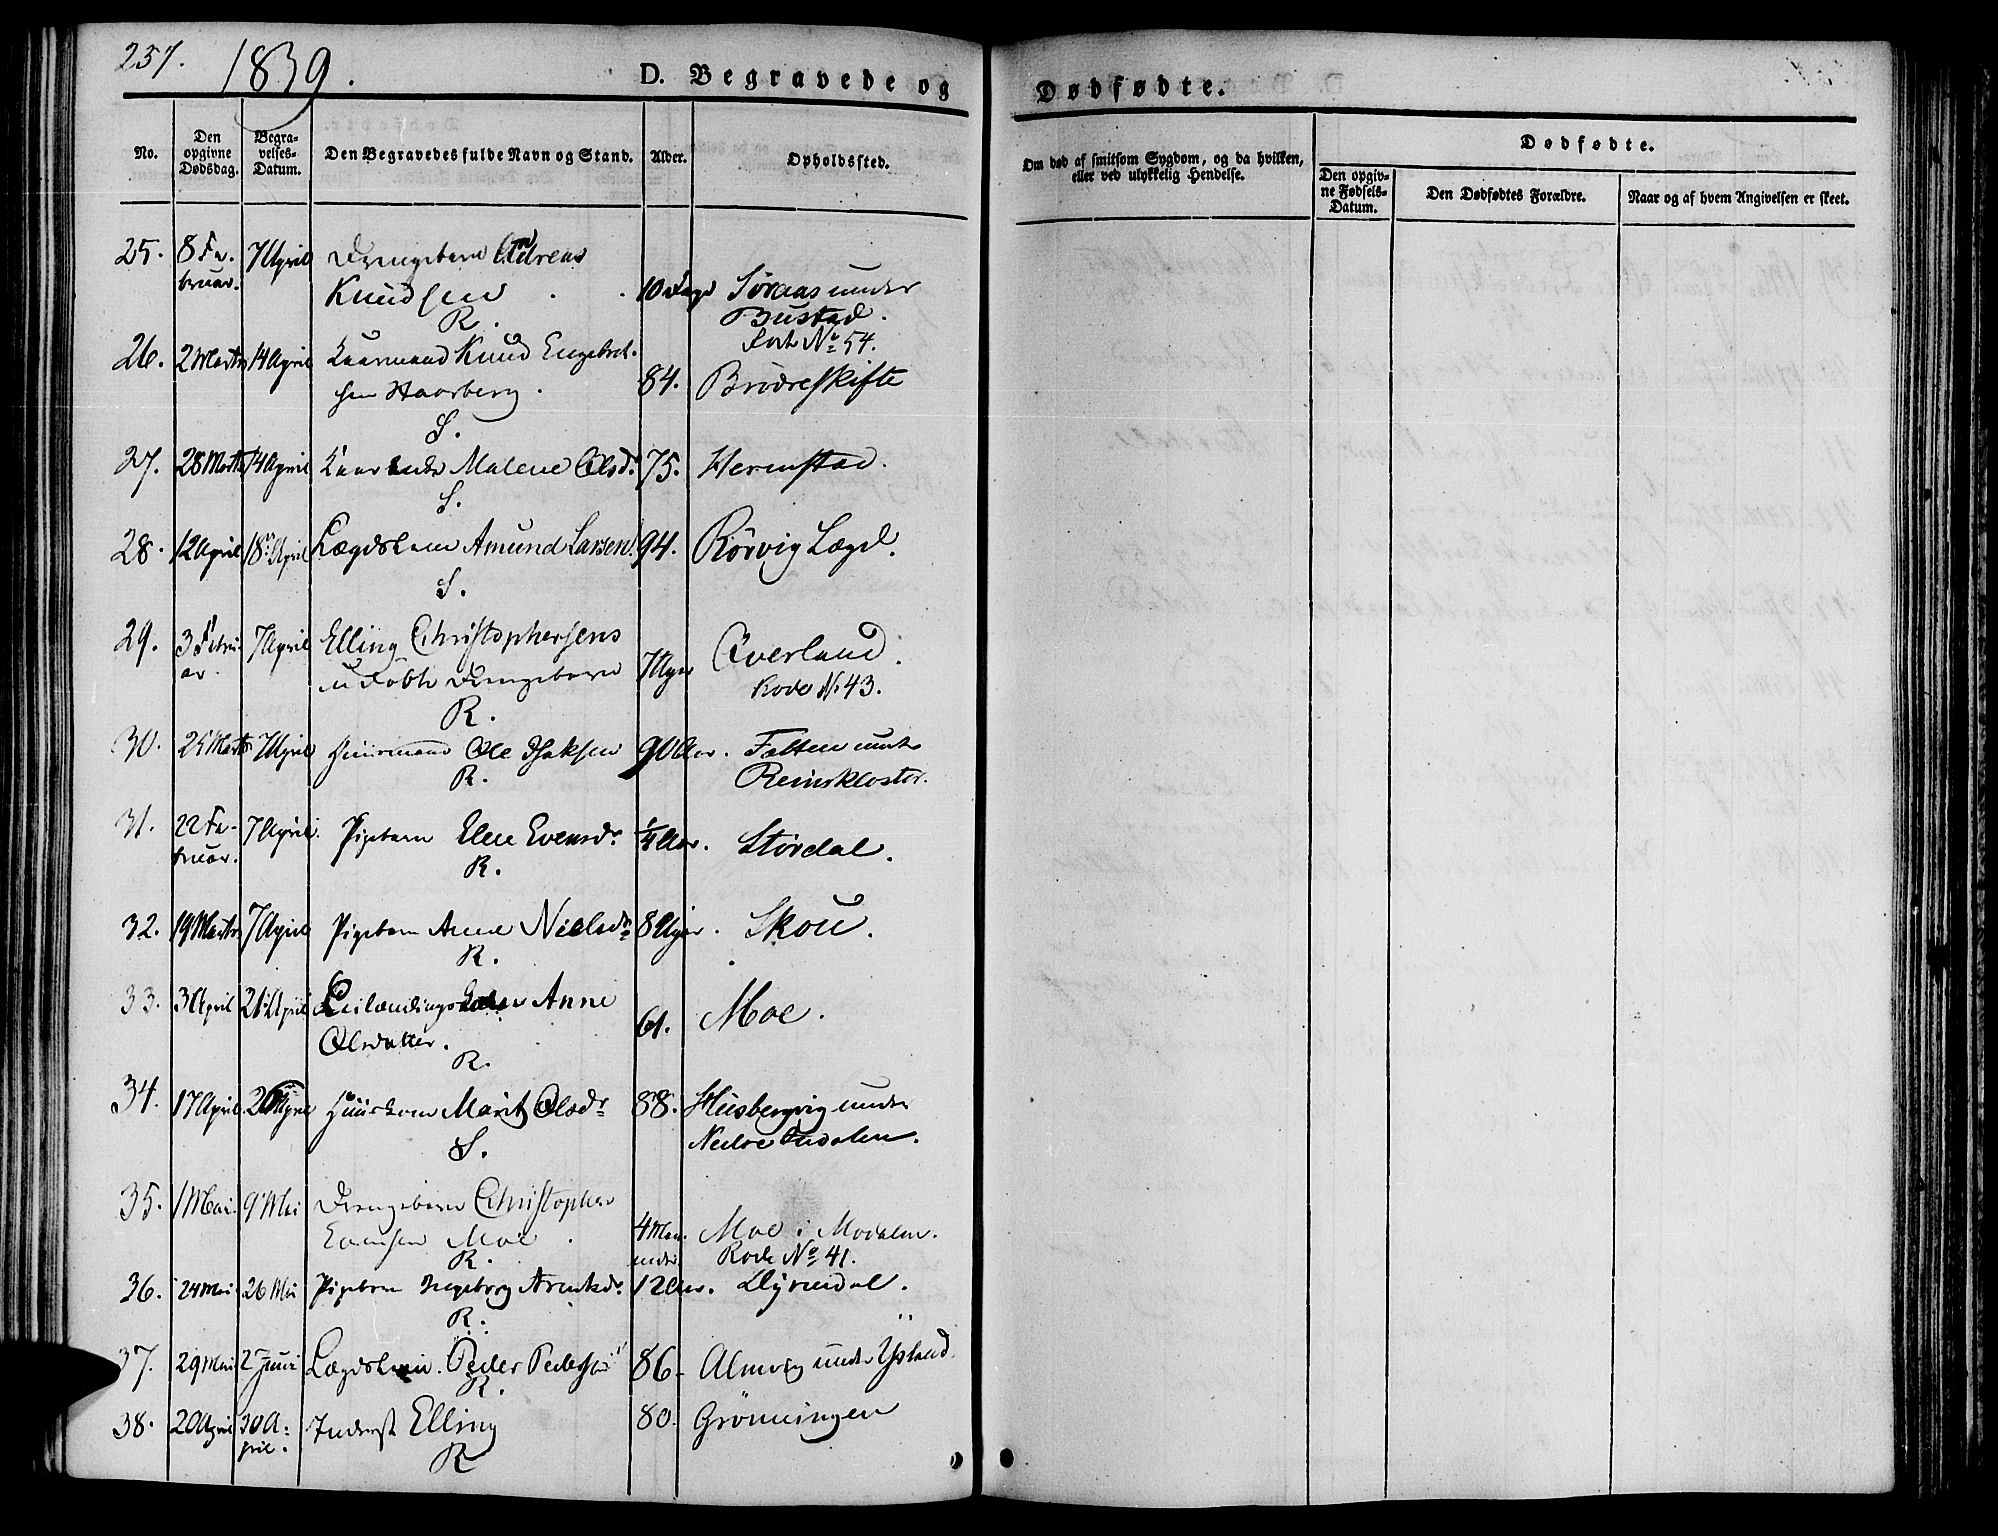 237. 1839.
D. Begravede og
Dødfødte.
No.
Den opgivne Dødsdag.
Begravelses-Datum.
Den Begravedes fulde Navn og Stand.
Alder.
Opholdssted.
Om død af smitsom Sygdom, og da hvilken, eller ved ulykkelig Hendelse.
Dødfødte.
Den opgivne Fødsels-Datum.
Den Dødfødtes Forældre.
Naar og af hvem Angivelsen er skeet.
25. 8 Fe- 7 April Drengebarn Andreas
bruar. Knudsen 10 Dage Søraas under
R. Bustad.
No 54.
26. 2 Marts 14 April Kaarmand Knud Engebret-
sen Haarberg. 84. Brødreskifte
S.
27. 28 Marts 14 April Malene Olsdr 75. Hermstad.
S.
28. 12 April 18 April Lægdslem Amund Larsen 94. Rørvig Lægd.
S.
29. 3 Febru- 7 April Elling Christophersens
ar. udøbte Drengebarn 7 Uger Qverland.
R. Rode No 43.
30. 25 Marts 7 April Huusmand Ole Isaksen 90 Aar. Fætten under
R. Reinskloster.
31. 22 Fe- 7 April. Pigebarn Elen Evensdr 1/4 Aar. Størdal.
bruar. R.
32. 19 Marts 7 April Pigebarn Anne Nielsdr 8 Uger. Skou.
R.
33. 3 April 21 April Leilændingskone Anne
Olsdatter. 61. Moe.
R.
34. 17 April 2 Huuskone Marit Olsdr 88. Husbergvig under
S. Nedre
35. 1 Mai. 9 Mai Drengebarn Christopher
Evensen Moe. 4 Maa- Moe i Modalen.
R. neder Rode No 41.
36. 24 Mai. 26 Mai Pigebarn Ingeborg Arntsdr. 12 Aar. Dyrendal.
R.
37. 29 Mai 2 Juni Lægdslem. Peder Pedersen 86. Almvig under Ysland.
R.
38. 20 April 30 A- Inderst Elling 80. Grønningen
pril. R